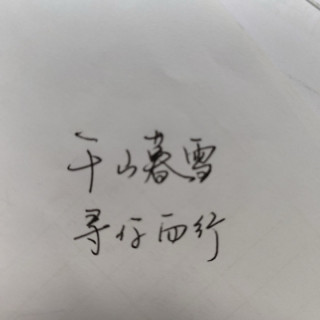 千山暮雪
寻仔而行